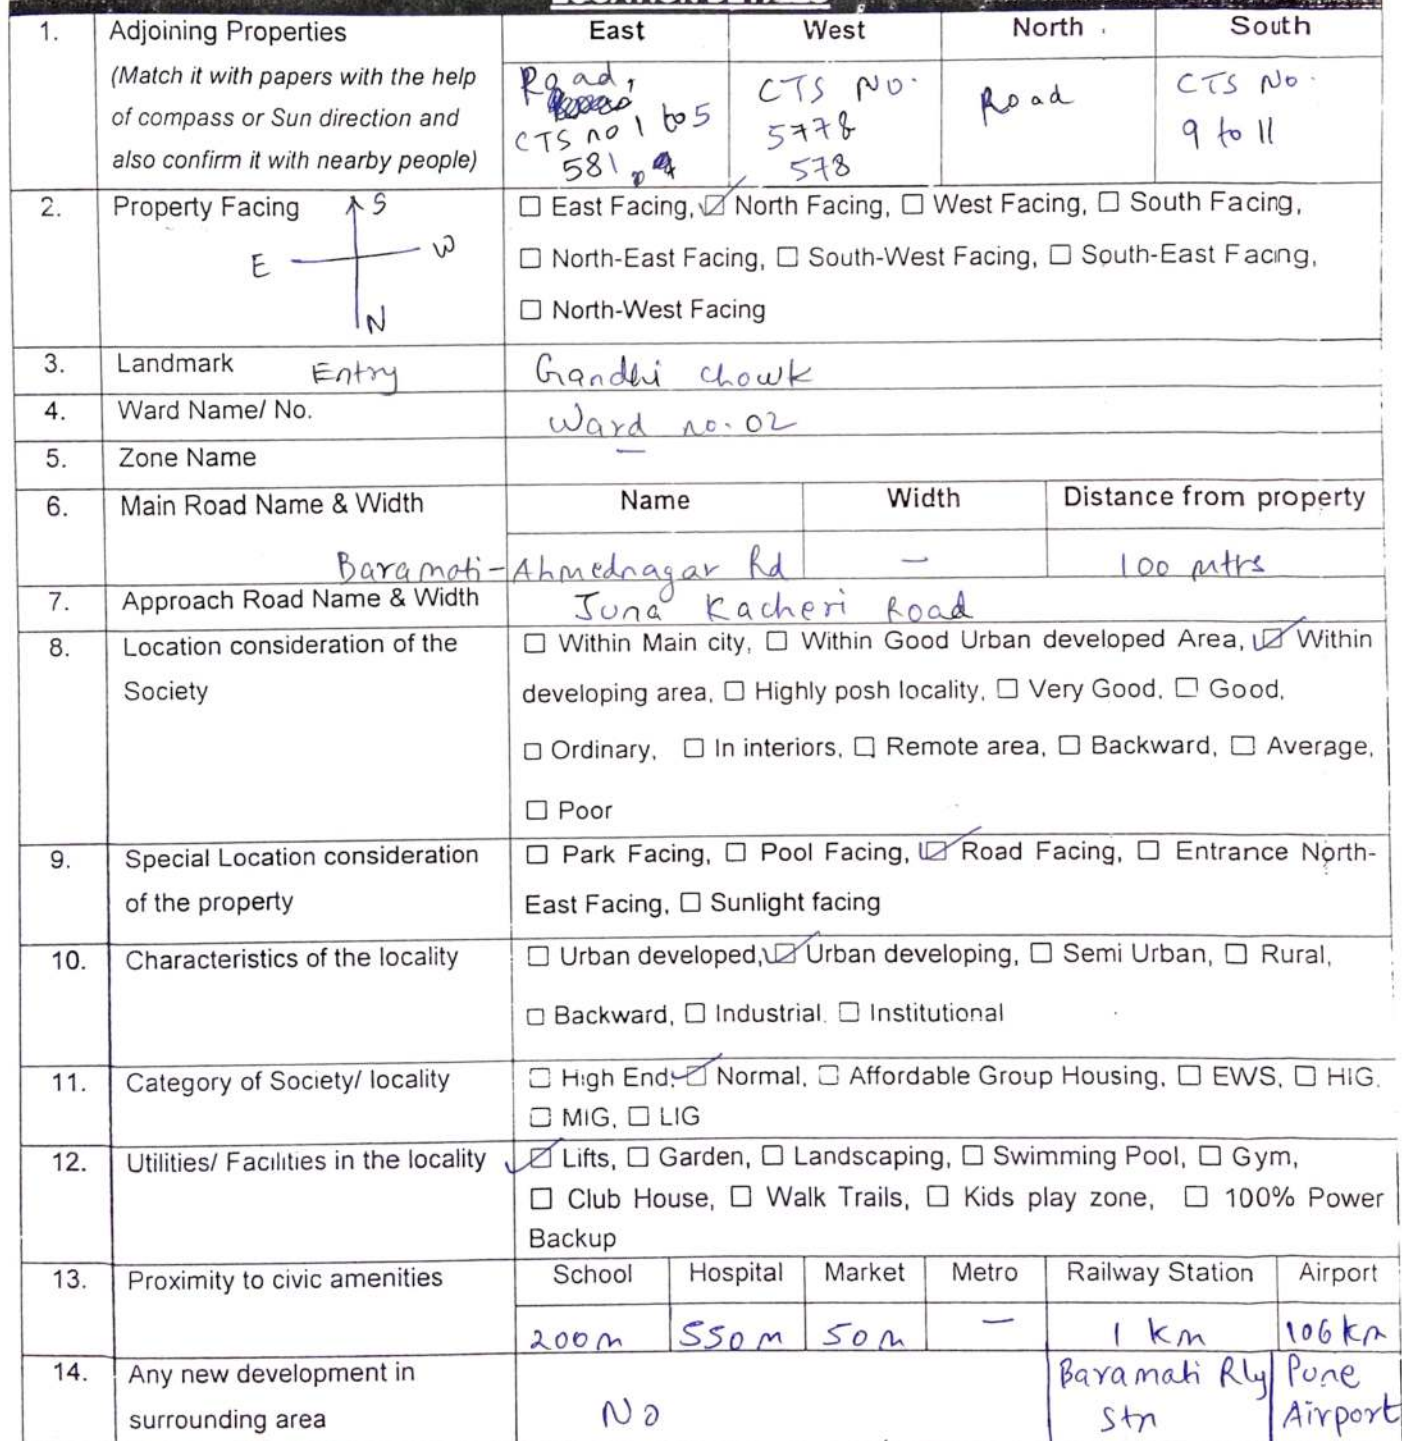 LOCATION DETAILS
1. Adjoining Properties East West North South
(Match it with papers with the help of compass or Sun direction and also confirm it with nearby people)
Road, CTS no 1 to 5 581
CTS No. 5778 578
Road
CTS No. 9 to 11
2. Property Facing S E W N
☐ East Facing, ☑ North Facing, ☐ West Facing, ☐ South Facing,
☐ North-East Facing, ☐ South-West Facing, ☐ South-East Facing,
☐ North-West Facing
3. Landmark Entry Gandhi chowk
4. Ward Name/ No. Ward no. 02
5. Zone Name —
6. Main Road Name & Width Name Width Distance from property
Baramati-Ahmednagar Rd — 100 mtrs
7. Approach Road Name & Width Juna Kacheri Road
8. Location consideration of the Society
☐ Within Main city, ☐ Within Good Urban developed Area, ☑ Within
developing area, ☐ Highly posh locality, ☐ Very Good, ☐ Good,
☐ Ordinary, ☐ In interiors, ☐ Remote area, ☐ Backward, ☐ Average,
☐ Poor
9. Special Location consideration of the property
☐ Park Facing, ☐ Pool Facing, ☑ Road Facing, ☐ Entrance North-
East Facing, ☐ Sunlight facing
10. Characteristics of the locality
☐ Urban developed, ☑ Urban developing, ☐ Semi Urban, ☐ Rural,
☐ Backward, ☐ Industrial, ☐ Institutional
11. Category of Society/ locality
☐ High End, ☑ Normal, ☐ Affordable Group Housing, ☐ EWS, ☐ HIG,
☐ MIG, ☐ LIG
12. Utilities/ Facilities in the locality
☑ Lifts, ☐ Garden, ☐ Landscaping, ☐ Swimming Pool, ☐ Gym,
☐ Club House, ☐ Walk Trails, ☐ Kids play zone, ☐ 100% Power
Backup
13. Proximity to civic amenities School Hospital Market Metro Railway Station Airport
200 m 550 m 50 m — 1 km 106 km
Baramati Rly Stn
Pune Airport
14. Any new development in surrounding area No